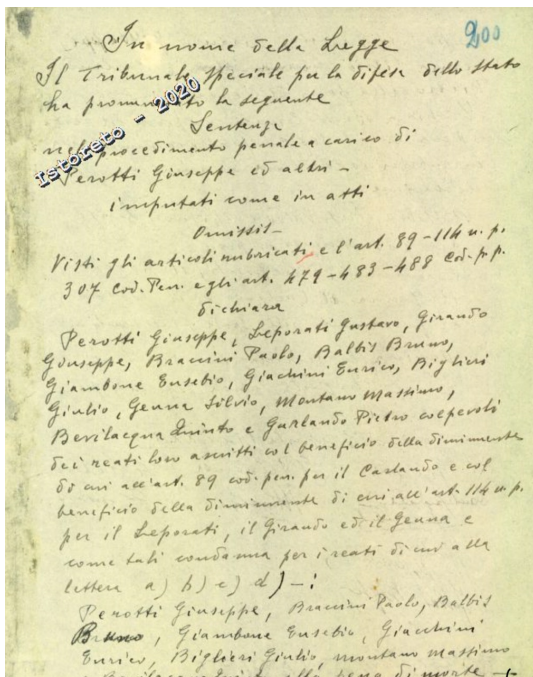 200
In nome della Legge
Il Tribunale speciale per la difesa dello stato
ha pronunciato la seguente
Sentenza
nel procedimento penale a carico di
Perotti Giuseppe ed altri -
imputati come in atti
Omissis -
Visti gli articoli rubricati e l'art. 89-114 u. p.
307 cod. Pen. e gli art. 479-483-488 cod. p.p.
dichiara
Perotti Giuseppe, Leporati Gustavo, Girando
Giuseppe, Braccini Paolo, Balbis Bruno,
Giambone Eusebio, Giachini Enrico, Biglieri
Giulio, Geuna Silvio, Montano Massimo,
Bevilacqua Quinto e Garlando Pietro colpevoli
dei reati loro ascritti col beneficio della diminuente
di cui all'art. 89 cod. pen. per il Carlando e col
beneficio della diminuente di cui all'art. 114 u. p.
per il Leporati, il Girando ed il Geuna e
come tali condanna per i reati di cui alla
lettera a) b) c) d) - :
Perotti Giuseppe, Braccini Paolo, Balbis
Bruno, Giambone Eusebio, Giacchini
Enrico, Biglieri Giulio, montano massimo
alla pena di morte -
Istoreto - 2020